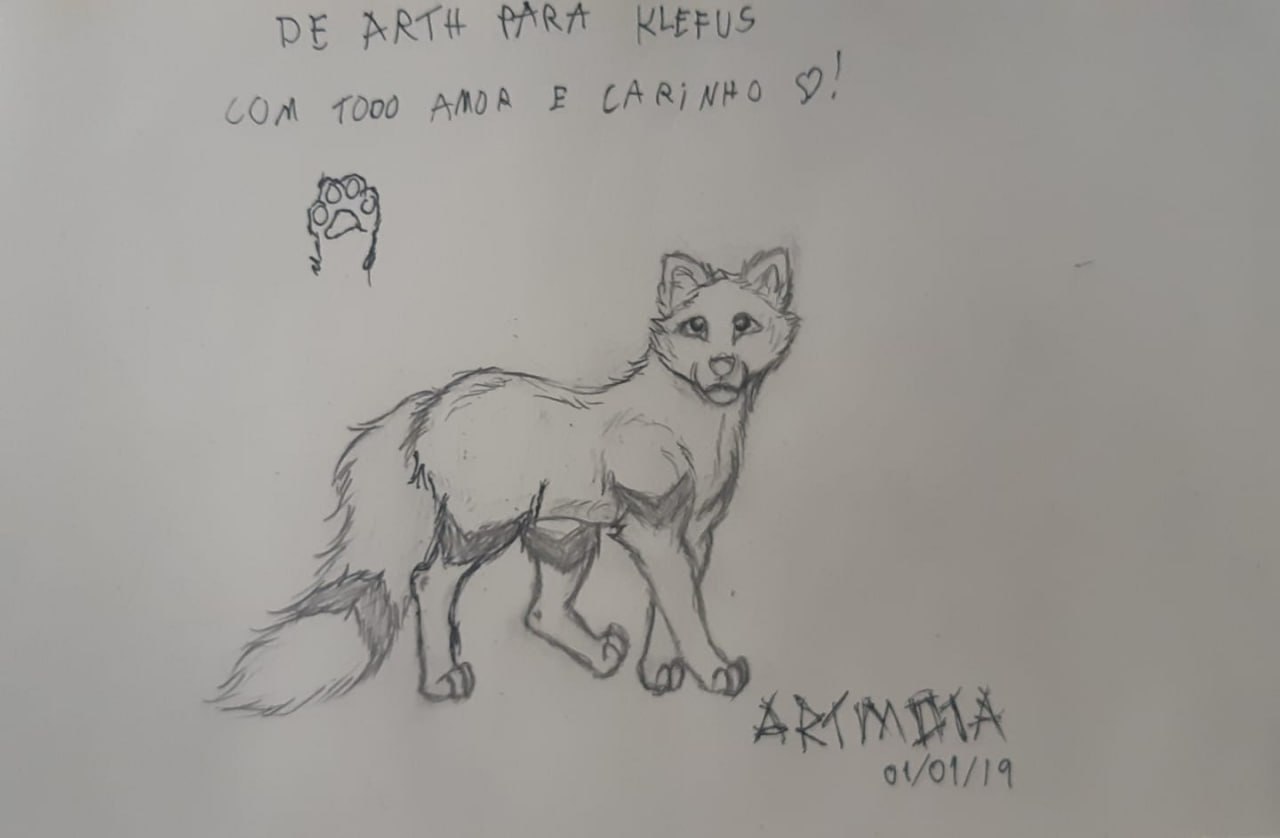 DE ARTH PARA KLEFUS
COM TODO AMOR E CARINHO ♡!
01/01/19